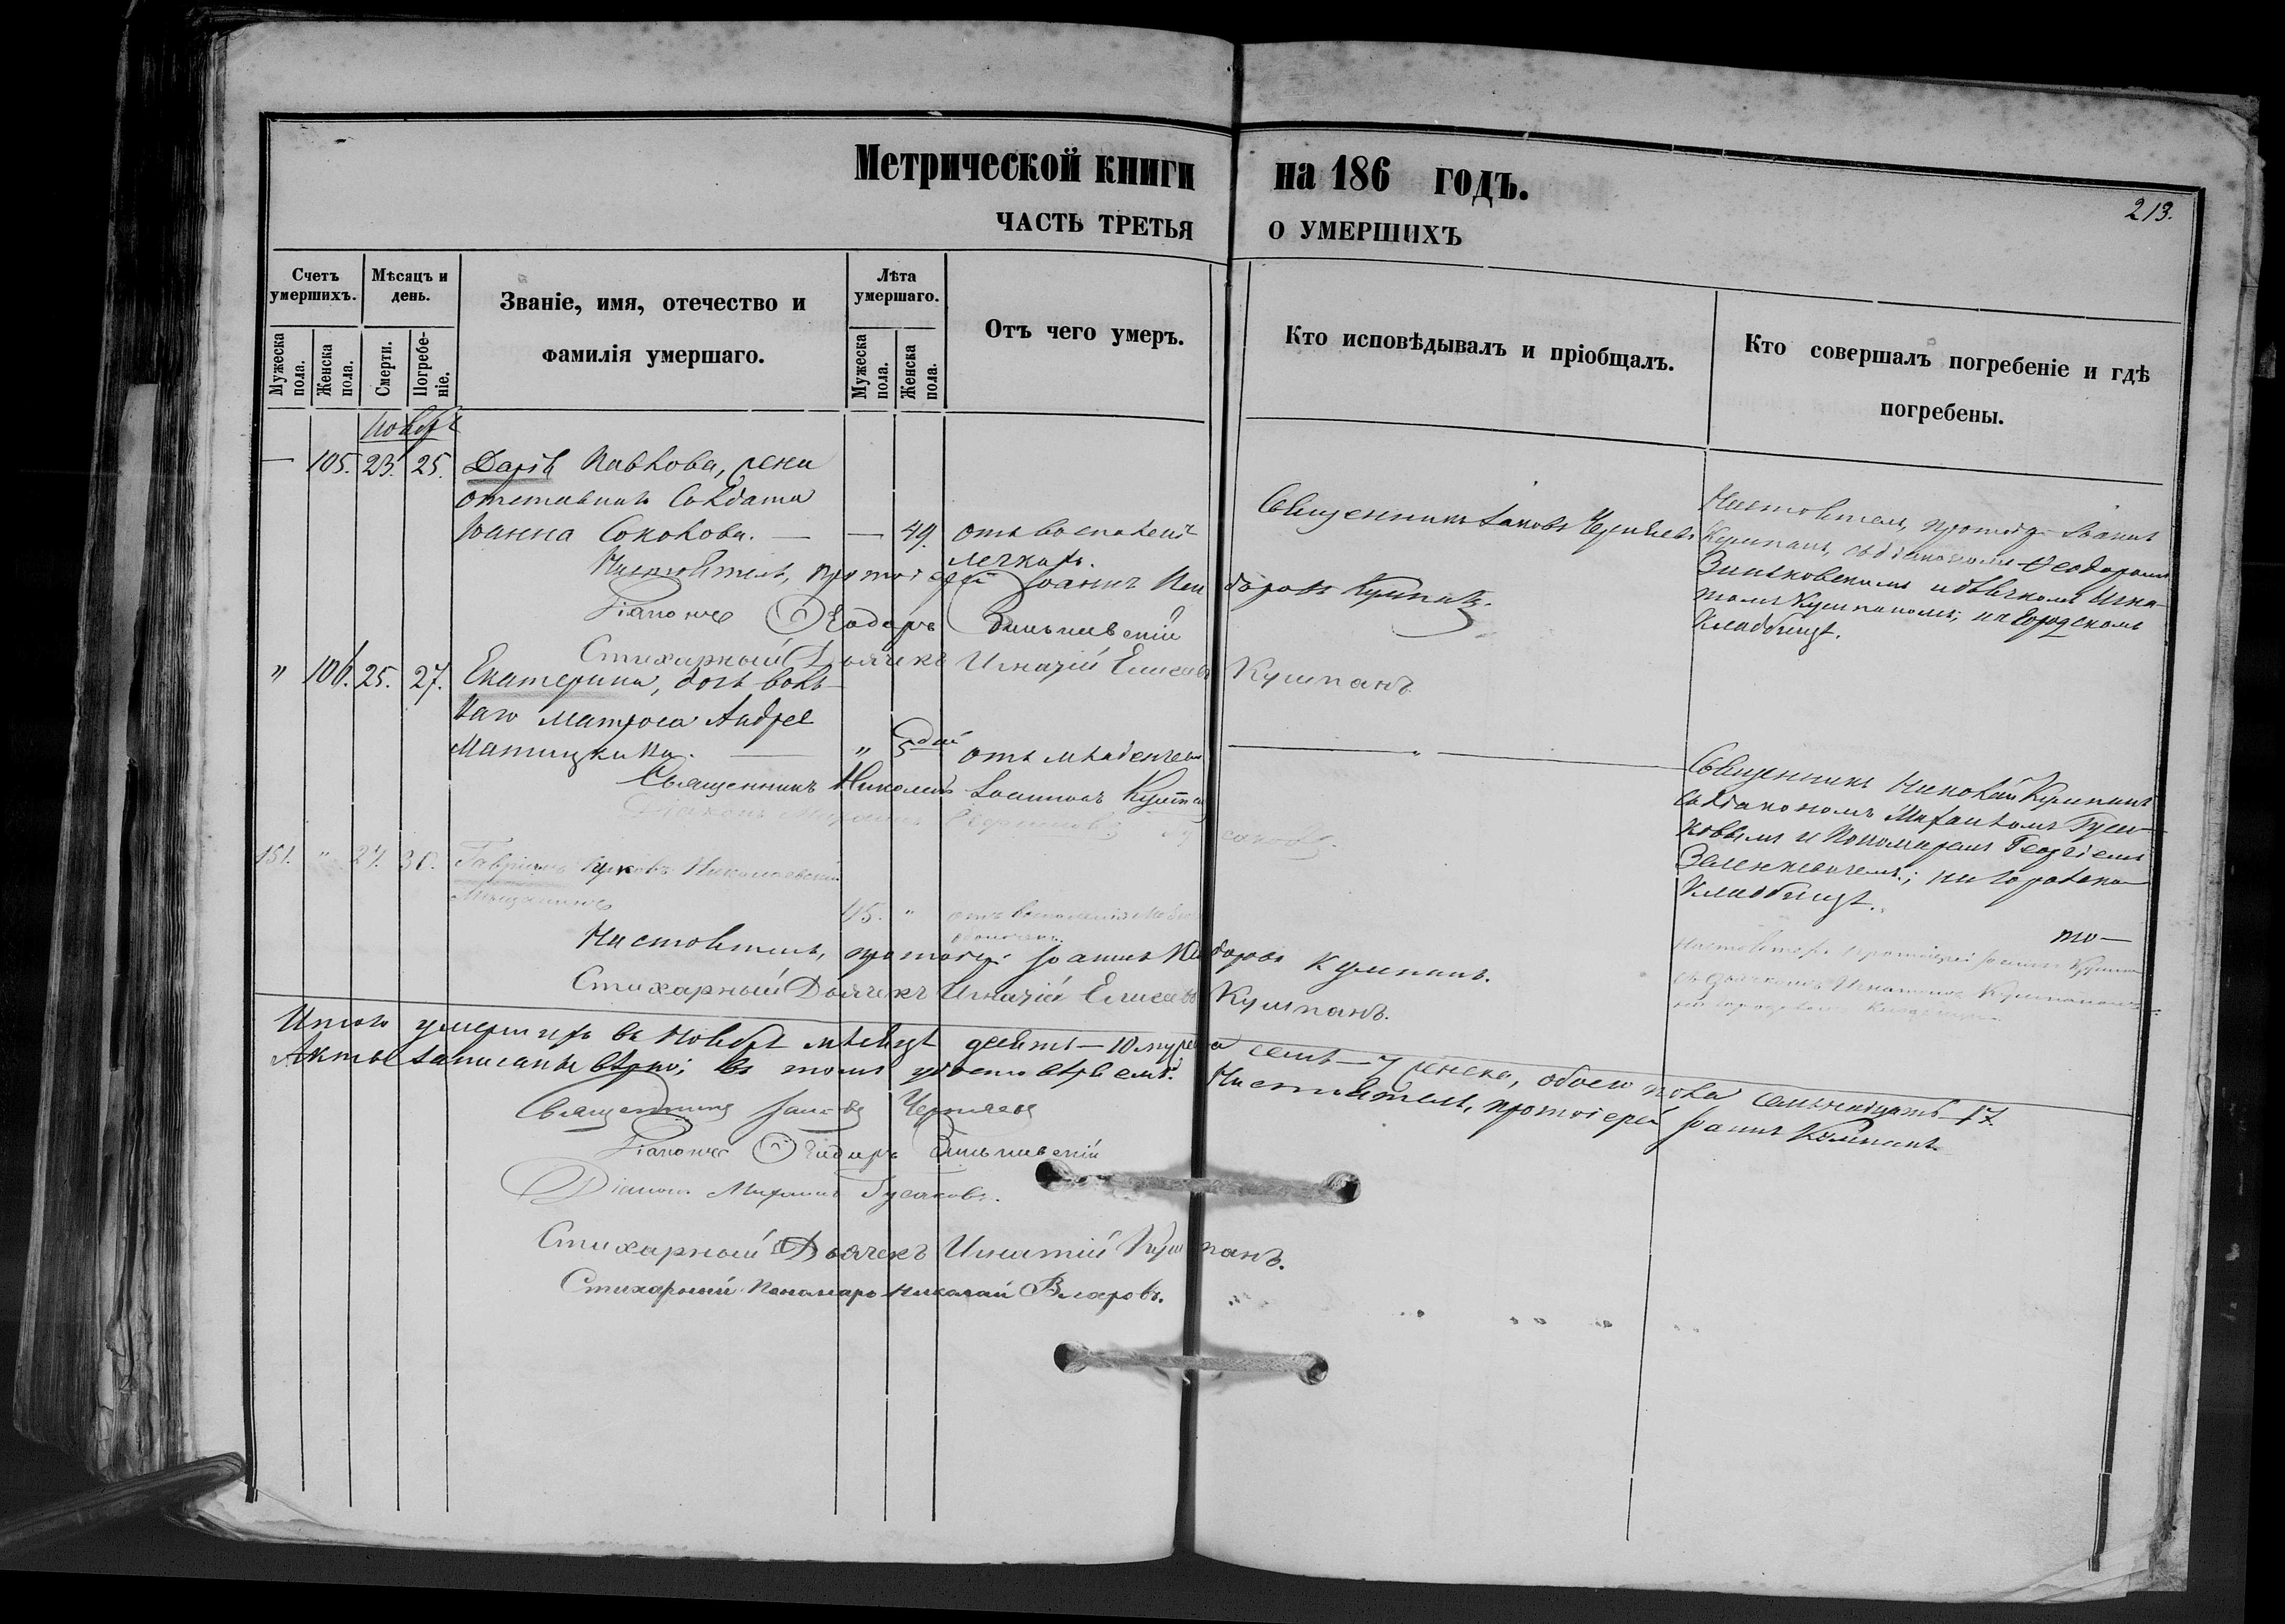 Метрической книги на 186 годъ.
213.
ЧАСТЬ ТРЕТЬЯ О УМЕРШИХЪ
Счетъ умершихъ.
Мѣсяцъ и день.
Званіе, имя, отечество и фамилія умершаго.
Лѣта умершаго.
Отъ чего умеръ.
Кто исповѣдывалъ и пріобщалъ.
Кто совершалъ погребеніе и гдѣ погребены.
Мужеска пола.
Женска пола.
Смерти.
Погребеніе.
Мужеска пола.
Женска пола.
Ноябрь
— 105. 23. 25. Дарія Павлова, жена
отставнаго Солдата
Іоанна Соколова. — — 49. отъ воспаленія
легкихъ.
Священникъ Іаковъ Черняевъ
Настоятель, протоіер. Іоаннъ
Кушпанъ, съ діакономъ Ѳеодоромъ
Зиньковскимъ и дьячкомъ Игна-
тіемъ Кушпаномъ; на городскомъ
Кладбищѣ.
Настоятель, протоіерей Іоаннъ Исидоровъ Кушпанъ.
Діаконъ Ѳеодоръ Зиньковскій
Стихарный Дьячекъ Игнатій Елисеевъ Кушпанъ
" 106. 25. 27. Екатерина, дочь воль-
наго матроса Андрея
Матицына. — " 5 дней отъ младенческой
Священникъ Николай Кушпанъ
съ діакономъ Михаиломъ Гуса-
ковымъ и Пономаремъ Георгіемъ
на городском
Кладбищѣ.
Священникъ Николай Іоанновъ Кушпанъ
Діаконъ Михаилъ Гусаковъ.
151. " 27. 30. Гавріилъ Николаевскій
Мѣщанинъ 45. " отъ воспаленія
Настоятель Протоіерей Іоаннъ Кушпанъ
съ дьячкомъ Игнатіемъ Кушпаномъ
на городскомъ Кладбищѣ
Настоятель, протоіер. Іоаннъ Исидоровъ Кушпанъ.
Стихарный Дьячекъ Игнатій Елисеевъ Кушпанъ.
Итого умершихъ въ Ноябрѣ мѣсяцѣ десять — 10 мужеска семь — 7 женска, обоего пола семнадцать 17
Акты записаны вѣрно; въ томъ удостовѣряемъ: Настоятель, протоіерей Іоаннъ Кушпанъ
Священникъ Іаковъ Черняевъ
Діаконъ Ѳеодоръ Зиньковскій
Діаконъ Михаилъ Гусаковъ.
Стихарный Дьячекъ Игнатій Кушпанъ.
Стихарный Пономарь Николай